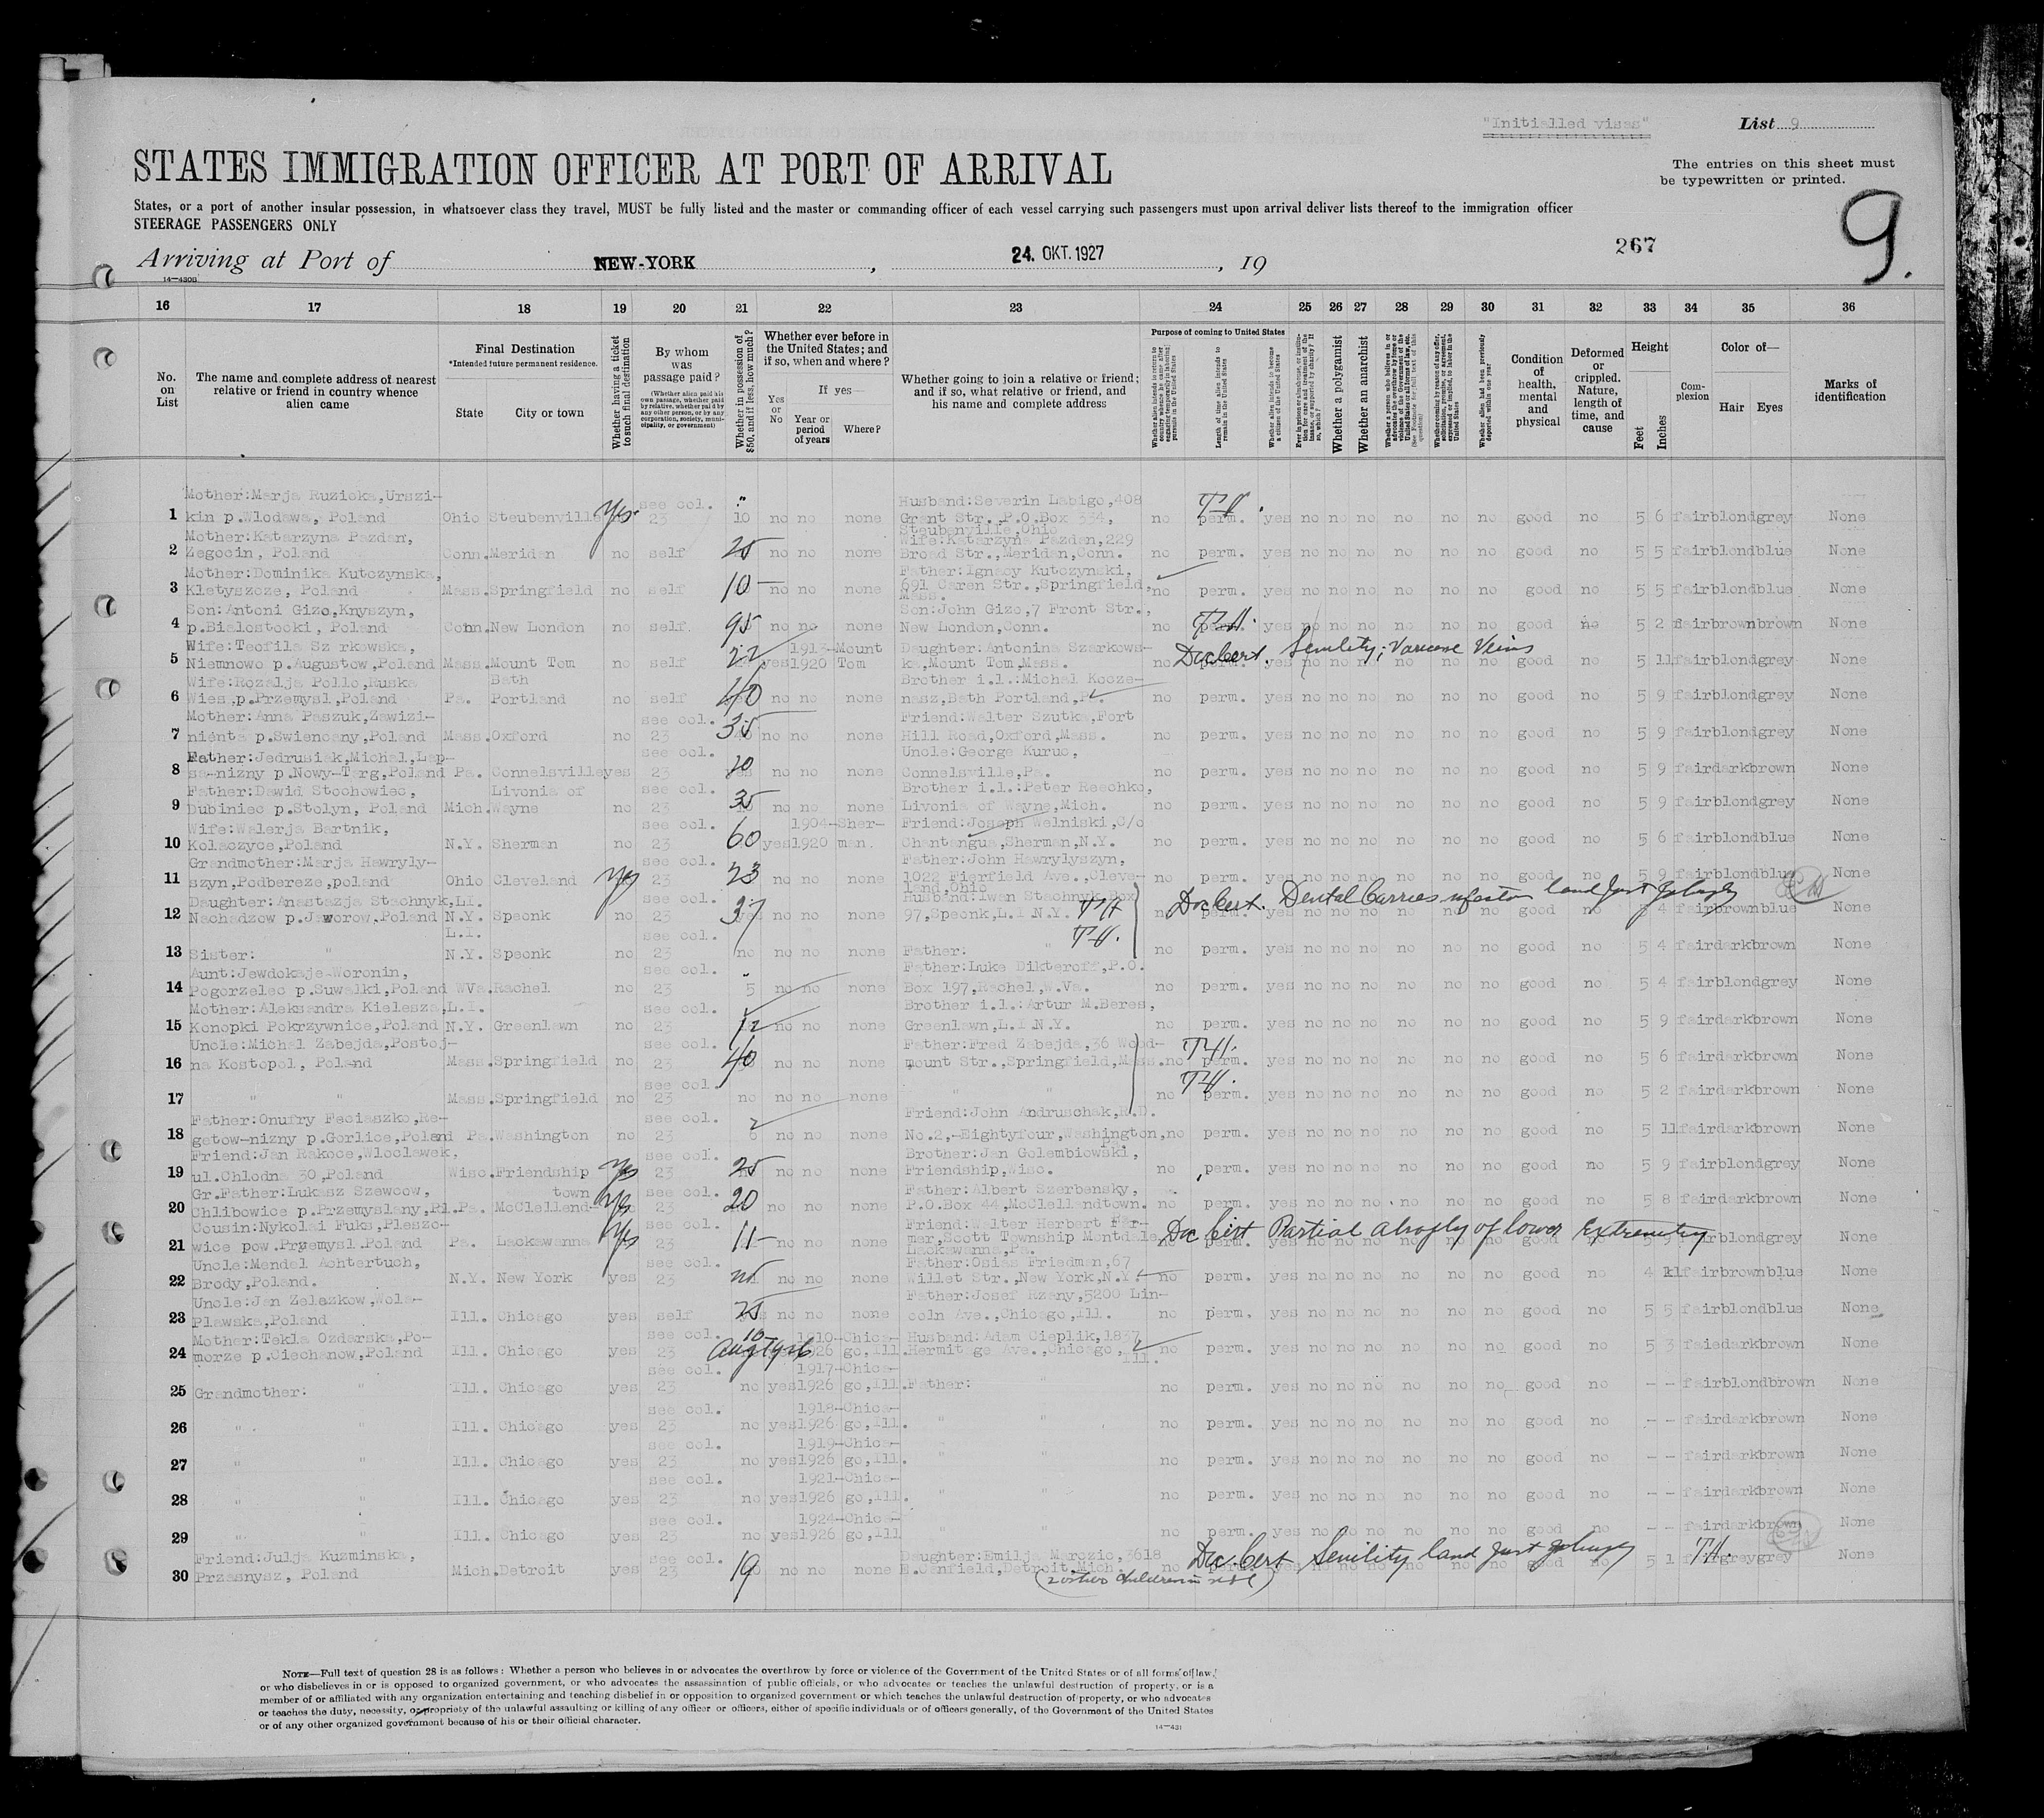 "Initialled vises"
List 9
STATES IMMIGRATION OFFICER AT PORT OF ARRIVAL
The entries on this sheet must
be typewritten or printed.
States, or a port of another insular possession, in whatsoever class they travel, MUST be fully listed and the master or commanding officer of each vessel carrying such passengers must upon arrival deliver lists thereof to the immigration officer
STEERAGE PASSENGERS ONLY
267
9.
Arriving at Port of NEW-YORK, 24. OKT. 1927, 19
14-430B
16 17 18 19 20 21 22 23 24 25 26 27 28 29 30 31 32 33 34 35 36
No. on List
The name and complete address of nearest relative or friend in country whence alien came
Final Destination
*Intended future permanent residence.
State
City or town
Whether having a ticket to such final destination
By whom was passage paid?
(Whether alien paid his own passage, whether paid by relative, whether paid by any other person, or by any corporation, society, municipality, or government)
Whether in possession of $50, and if less, how much?
Whether ever before in the United States; and if so, when and where?
Yes or No
If yes—
Year or period of years
Where?
Whether going to join a relative or friend; and if so, what relative or friend, and his name and complete address
Purpose of coming to United States
Length of time alien intends to remain in the United States
Whether alien intends to become a citizen of the United States
Whether a polygamist
Whether an anarchist
Condition of health, mental and physical
Deformed or crippled. Nature, length of time, and cause
Height
Feet
Inches
Complexion
Color of—
Hair
Eyes
Marks of identification
Mother:Marja Ruzicka,Urszi- see col. Husband:Severin Labigo,408
1 kin p.Wlodawa, Poland Ohio Steubenville Yes 23 10 no no none Grant Str.,P.O.Box 334, no perm. yes no no no no no no good no 5 6 fair blond grey None
Steubenville,Ohio
Mother:Katarzyna Pazdan, Wife:Katarzyna Pazdan,229
2 Zegocin, Poland Conn. Meriden no self 25 no no none Broad Str.,Meriden,Conn. no perm. yes no no no no no no good no 5 5 fair blond blue None
Mother:Dominika Kutczynska, Father:Ignacy Kutczynski,
3 Kletyszcze, Poland Mass. Springfield no self 10 no no none 691 Caren Str.,Springfield, no perm. yes no no no no no no good no 5 5 fair blond blue None
Mass.
Son:Antoni Gizo,Knyszyn, Son:John Gizo,7 Front Str.,
4 p.Bialostocki, Poland Conn. New London no self. 95 no no none New London,Conn. no yes no no no no no no good no 5 2 fair brown brown None
Wife:Teofila Sz rkowska, 1913- Mount Daughter:Antonina Szarkows- Senility; Varicose Veins
5 Niemnowo p.Augustow,Poland Mass. Mount Tom no self 22 yes 1920 Tom ka,Mount Tom,Mass. no Doc Cert. yes no no no no no no good no 5 11 fair blond grey None
Wife:Rozalja Pollo,Ruska Bath Brother i.l.:Michal Kocze-
6 Wies,p.Przemysl,Poland Pa. Portland no self 40 no no none nasz,Bath Portland,Pa. no perm. yes no no no no no no good no 5 9 fair blond grey None
Mother:Anna Paszuk,Zawizi- see col. Friend:Walter Szutka,Fort
7 nienta p.Swienoany,Poland Mass. Oxford no 23 35 no no none Hill Road,Oxford,Mass. no perm. yes no no no no no no good no 5 9 fair blond grey None
Father:Jedrusiak,Michal,Lap- see col. Uncle:George Kuruc,
8 sz-nizny p.Nowy-Targ,Poland Pa. Connelsville yes 23 20 no no none Connelsville,Pa. no perm. yes no no no no no no good no 5 9 fair dark brown None
Father:Dawid Stochowiec, Livonia of see col. Brother i.l.:Peter Reechko,
9 Dubiniec p.Stolyn, Poland Mich. Wayne no 23 35 no no none Livonia of Wayne,Mich. no perm. yes no no no no no no good no 5 9 fair blond grey None
Wife:Walerja Bartnik, see col. 1904- Sher- Friend:Joseph Welniski,C/o
10 Kolaczyce,Poland N.Y. Sherman no 23 60 yes 1920 man. Chantangua,Sherman,N.Y. no perm. yes no no no no no no good no 5 6 fair blond blue None
Grandmother:Marja Hawryly- see col. Father:John Hawrylyszyn,
11 szyn,Podbereze,poland Ohio Cleveland Yes 23 23 no no none 1022 Fierfield Ave.,Cleve- no perm. yes no no no no no no good no 5 9 fair blond blue None
land,Ohio
Daughter:Anastazja Stachnyk, L.I. see col. Husband:Iwan Stachnyk,Box Doc Cert. Dental Carries
12 Nachadzow p.Jaworow,Poland N.Y. Speonk no 23 37 no no none 97,Speonk,L.I N.Y. no perm. yes no no no no no no good no 5 4 fair brown blue None
L.I. see col.
13 Sister: " N.Y. Speonk no 23 no no no none Father: " no perm. yes no no no no no no good no 5 4 fair dark brown None
Aunt:Jewdokaje Woronin, see col. Father:Luke Dikteroff,P.O.
14 Pogorzelec p.Suwalki,Poland WVa. Rachel no 23 5 no no none Box 197,Rachel,W.Va. no perm. yes no no no no no no good no 5 4 fair blond grey None
Mother:Aleksandra Kielesza, L.I. see col. Brother i.l.:Artur M.Beres,
15 Konopki Pokrzywnice,Poland N.Y. Greenlawn no 23 12 no no none Greenlawn,L.I N.Y. no perm. yes no no no no no no good no 5 9 fair dark brown None
Uncle:Michal Zabejda,Postoj- see col. Father:Fred Zabejda,36 Wood-
16 na Kostopol, Poland Mass. Springfield no 23 40 no no none mount Str.,Springfield,Mass. no perm. yes no no no no no no good no 5 6 fair dark brown None
see col.
17 " " Mass. Springfield no 23 no no no none " " no perm. yes no no no no no no good no 5 2 fair dark brown None
Father:Onufry Feciaszko,Re- see col. Friend:John Andruschak,R.D.
18 getow-nizny p.Gorlice,Poland Pa. Washington no 23 6 no no none No.2,-Eightyfour,Washington, no perm. yes no no no no no no good no 5 11 fair dark brown None
Pa.
Friend:Jan Rakoce,Wloclawek, see col. Brother:Jan Golembiowski,
19 ul.Chlodna 30,Poland Wisc. Friendship Yes 23 25 no no none Friendship,Wisc. no perm. yes no no no no no no good no 5 9 fair blond grey None
Gr.Father:Lukasz Szewcow, town see col. Father:Albert Szerbensky,
20 Chlibowice p.Przemyslany,Pl. Pa. McClelland- Yes 23 20 no no none P.O.Box 44,McClellandtown. no perm. yes no no no no no no good no 5 8 fair dark brown None
Cousin:Nykolai Fuks,Pleszo- see col. Friend:Walter Herbert Far- Doc Cert Partial Atrophy of lower extremity
21 wice pow.Przemysl.Poland Pa. Lackawanna Yes 23 11 no no none mer,Scott Township Montdale, no perm. yes no no no no no no good no blond grey None
Lackawanna,Pa.
Uncle:Mendel Achtertuch, see col. Father:Osias Friedman,67
22 Brody,Poland. N.Y. New York yes 23 no no none Willet Str.,New York,N.Y. no perm. yes no no no no no no good no 4 11 fair brown blue None
Uncle:Jan Zelazkow,Wola- Father:Josef Rzany,5200 Lin-
23 Plawska,Poland Ill. Chicago yes self 25 no no none coln Ave.,Chicago,Ill. no perm. yes no no no no no no good no 5 5 fair blond blue None
Mother:Tekla Ozdarska,Po- see col. 10 1910- Chica- Husband:Adam Cieplik,1837
24 morze p.Ciechanow,Poland Ill. Chicago yes 23 Aug 1926 1926 go,Ill. Hermit ge Ave.,Chicago, no perm. yes no no no no no no good no 5 3 faie dark brown None
Ill.
see col. 1917- Chica-
25 Grandmother: " Ill. Chicago yes 23 no yes 1926 go,Ill. Father: " no perm. yes no no no no no no good no - - fair blond brown None
see col. 1918- Chica-
26 " " Ill. Chicago yes 23 no yes 1926 go,Ill. " " no perm. yes no no no no no no good no - - fair dark brown None
see col. 1919- Chica-
27 " " Ill. Chicago yes 23 no yes 1926 go,Ill. " " no perm. yes no no no no no no good no - - fair dark brown None
see col. 1921- Chica-
28 " " Ill. Chicago yes 23 no yes 1926 go,Ill. " " no perm. yes no no no no no no good no - - fair dark brown None
see col. 1924- Chica-
29 " " Ill. Chicago yes 23 no yes 1926 go,Ill " " no perm. yes no no no no no no good no - - fair dark brown None
Friend:Julja Kuzminska, see col. Daughter:Emilja Marozic,3618 Doc. Cert. Senility
30 Przasnysz, Poland Mich. Detroit yes 23 19 no no none E.Canfield,Detroit,Mich. no perm. yes no no no no no no good no 5 1 grey grey None
NOTE—Full text of question 28 is as follows: Whether a person who believes in or advocates the overthrow by force or violence of the Government of the United States or of all forms of law,
or who disbelieves in or is opposed to organized government, or who advocates the assassination of public officials, or who advocates or teaches the unlawful destruction of property, or is a
member of or affiliated with any organization entertaining and teaching disbelief in or opposition to organized government or which teaches the unlawful destruction of property, or who advocates
or teaches the duty, necessity, or propriety of the unlawful assaulting or killing of any officer or officers, either of specific individuals or of officers generally, of the Government of the United States
or of any other organized government because of his or their official character.
14-431